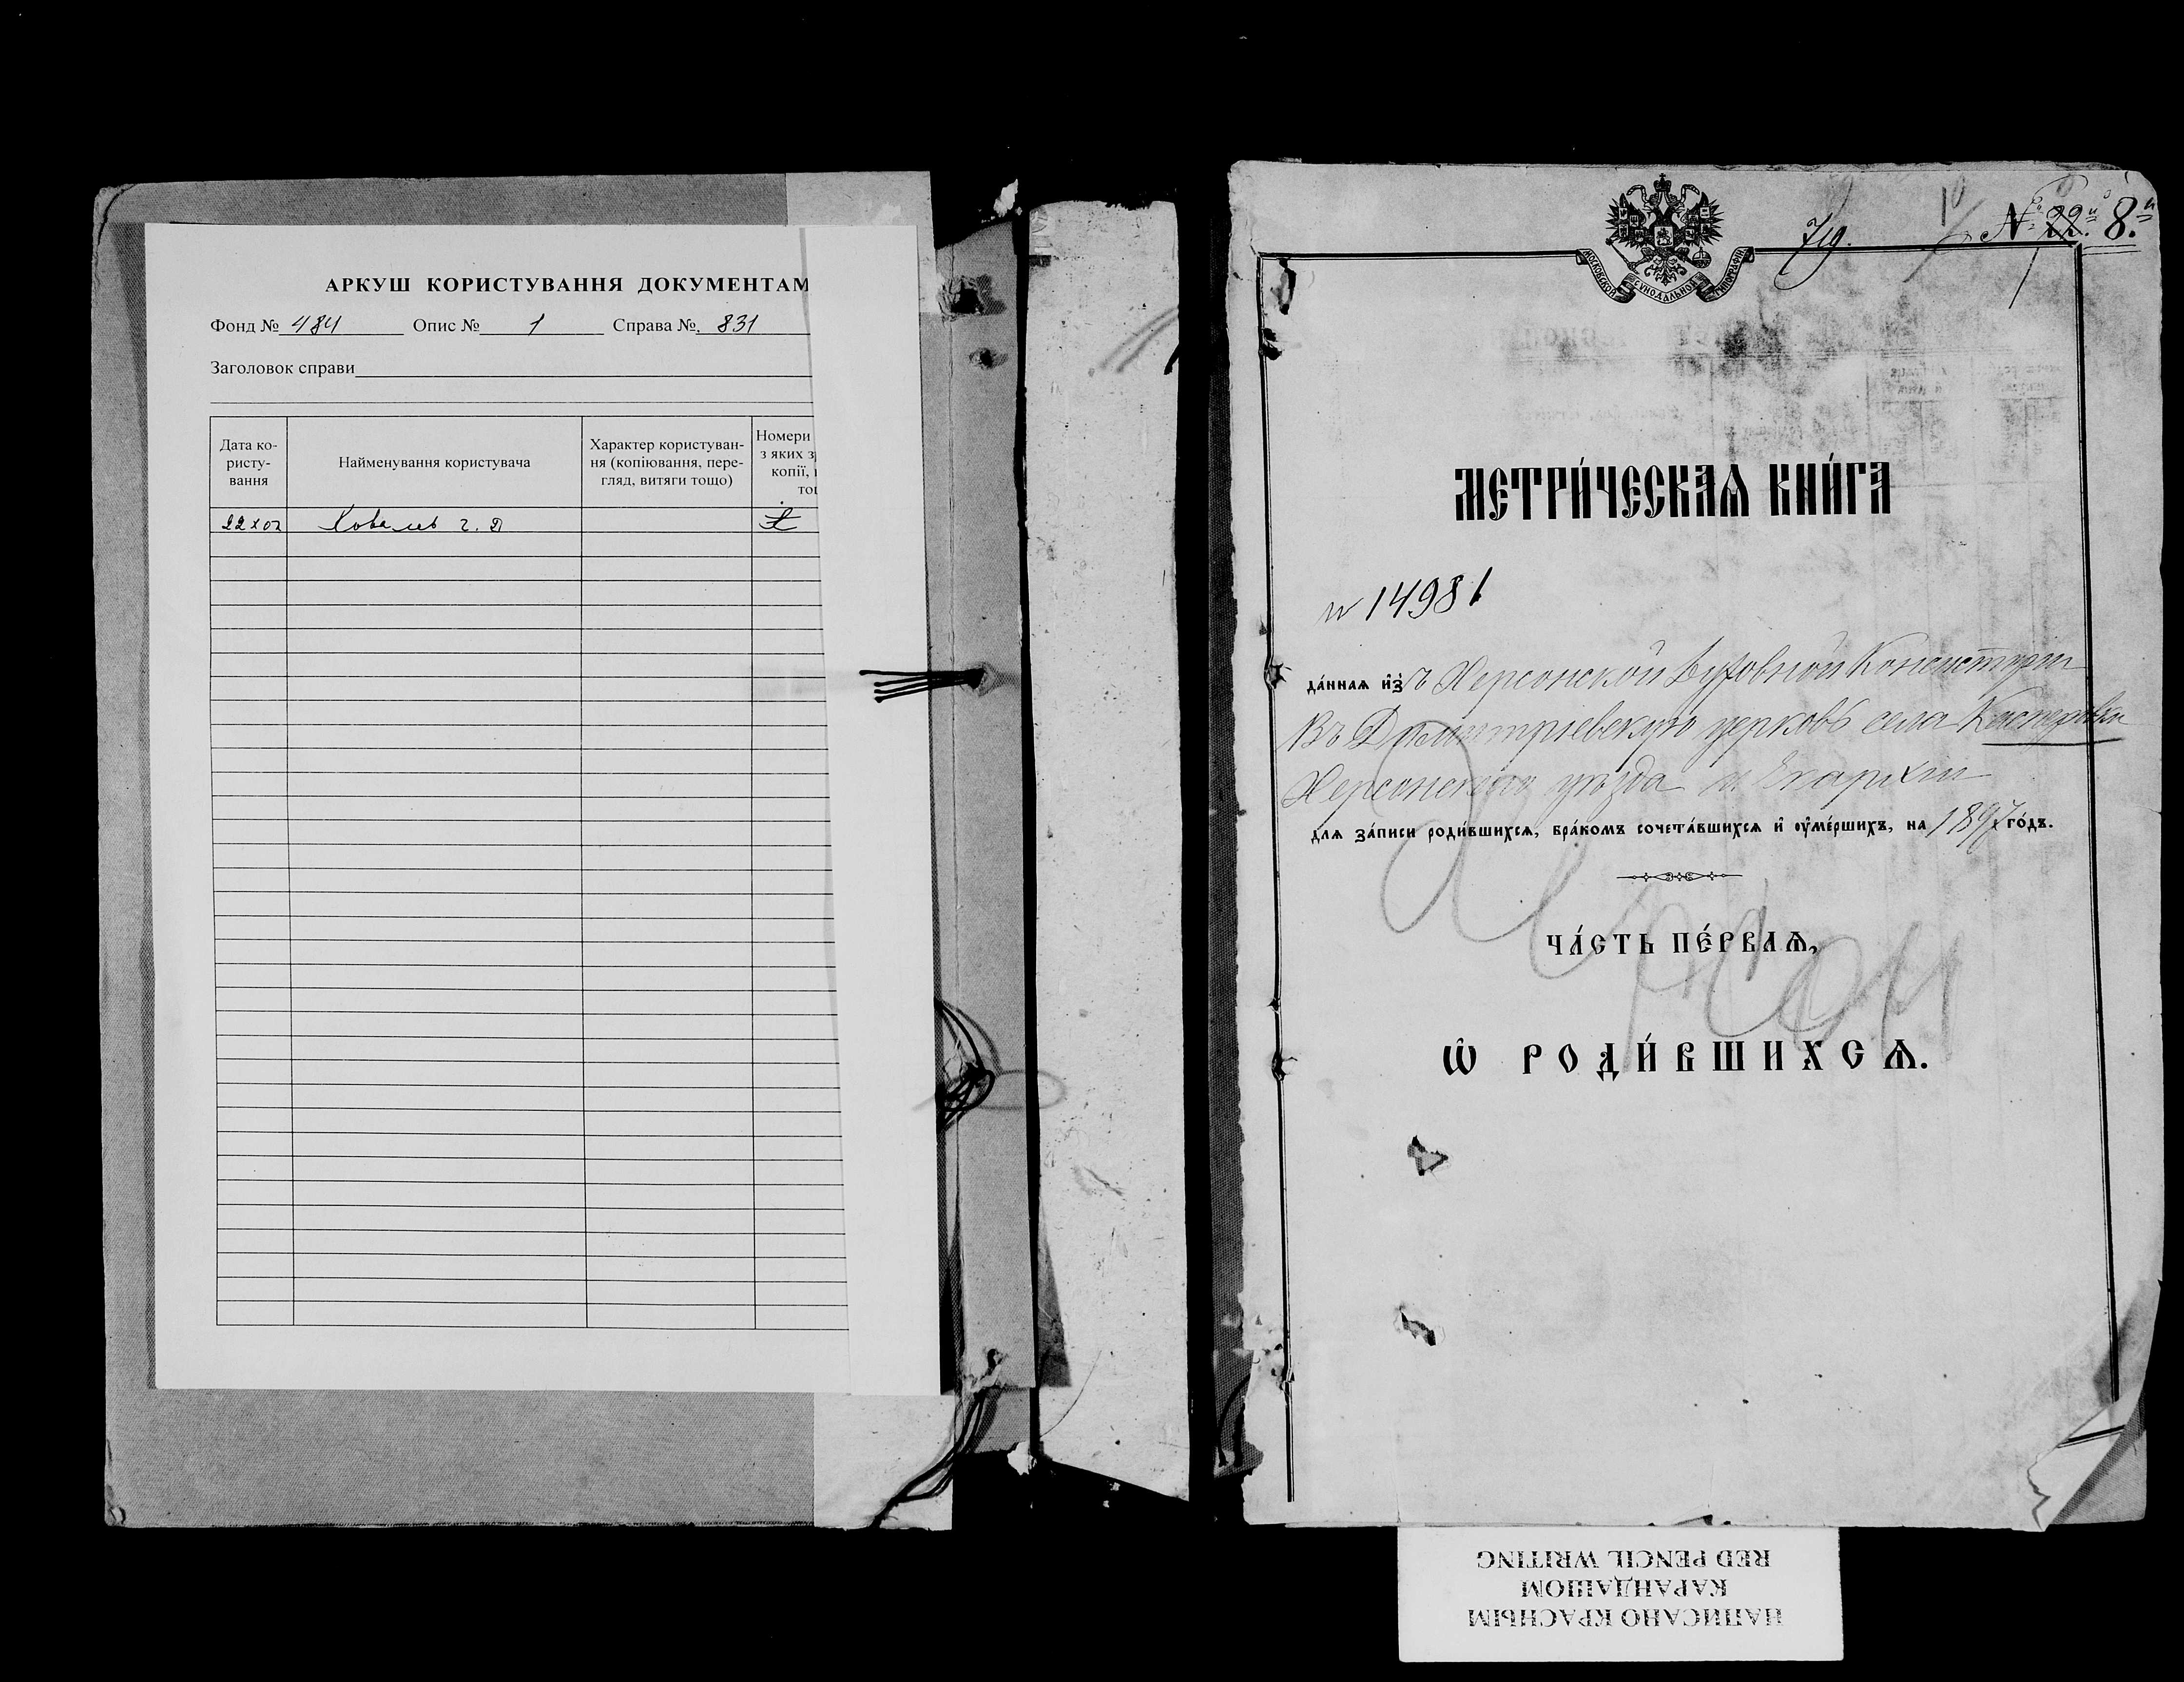 АРКУШ КОРИСТУВАННЯ ДОКУМЕНТАМ
Фонд № 484 Опис № 1 Справа №. 831
Заголовок справи
Дата ко-
ристу-
вання
Найменування користувача
Характер користуван-
ня (копіювання, пере-
гляд, витяги тощо)
Номери
з яких з
копії,
то
22 X 02
№ 22. 8.
МОСКОВСКОЙ СѴНОДАЛЬНОЙ ТИПОГРАФІИ
МЕТРИ́ЧЕСКАѦ КНИ́ГА
№ 14981
да́нная и҆з ъ Херсонской Духовной Консисторіи
Въ Димитріевскую церковь села Касперовки
Херсонского уѣзда и Епархіи
для за́писи роди́вшихсѧ, бра́комъ сочета́вшихсѧ и҆ ᲂу҆ме́ршихъ, на 1897 го́дъ.
ЧА́СТЬ ПЕ́РВАѦ,
Ѡ҆ РОДИ́ВШИХСѦ.
НАПИСАНО КРАСНЫМ
КАРАНДАШОМ
RED PENCIL WRITING